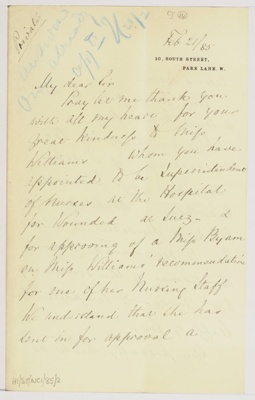 Private
Feb 21/85
10, SOUTH STREET,
PARK LANE. W.
My dear Sir
Pray let me thank you
with all my heart for your
great kindness to Miss
Williams whom you have
appointed to be Superintendent
of Nurses at the Hospital
for Wounded at Suez - &
for approving of a Miss Byam
on Miss Williams' recommendation
for one of her Nursing Staff
We understand that she has
sent in for approval a